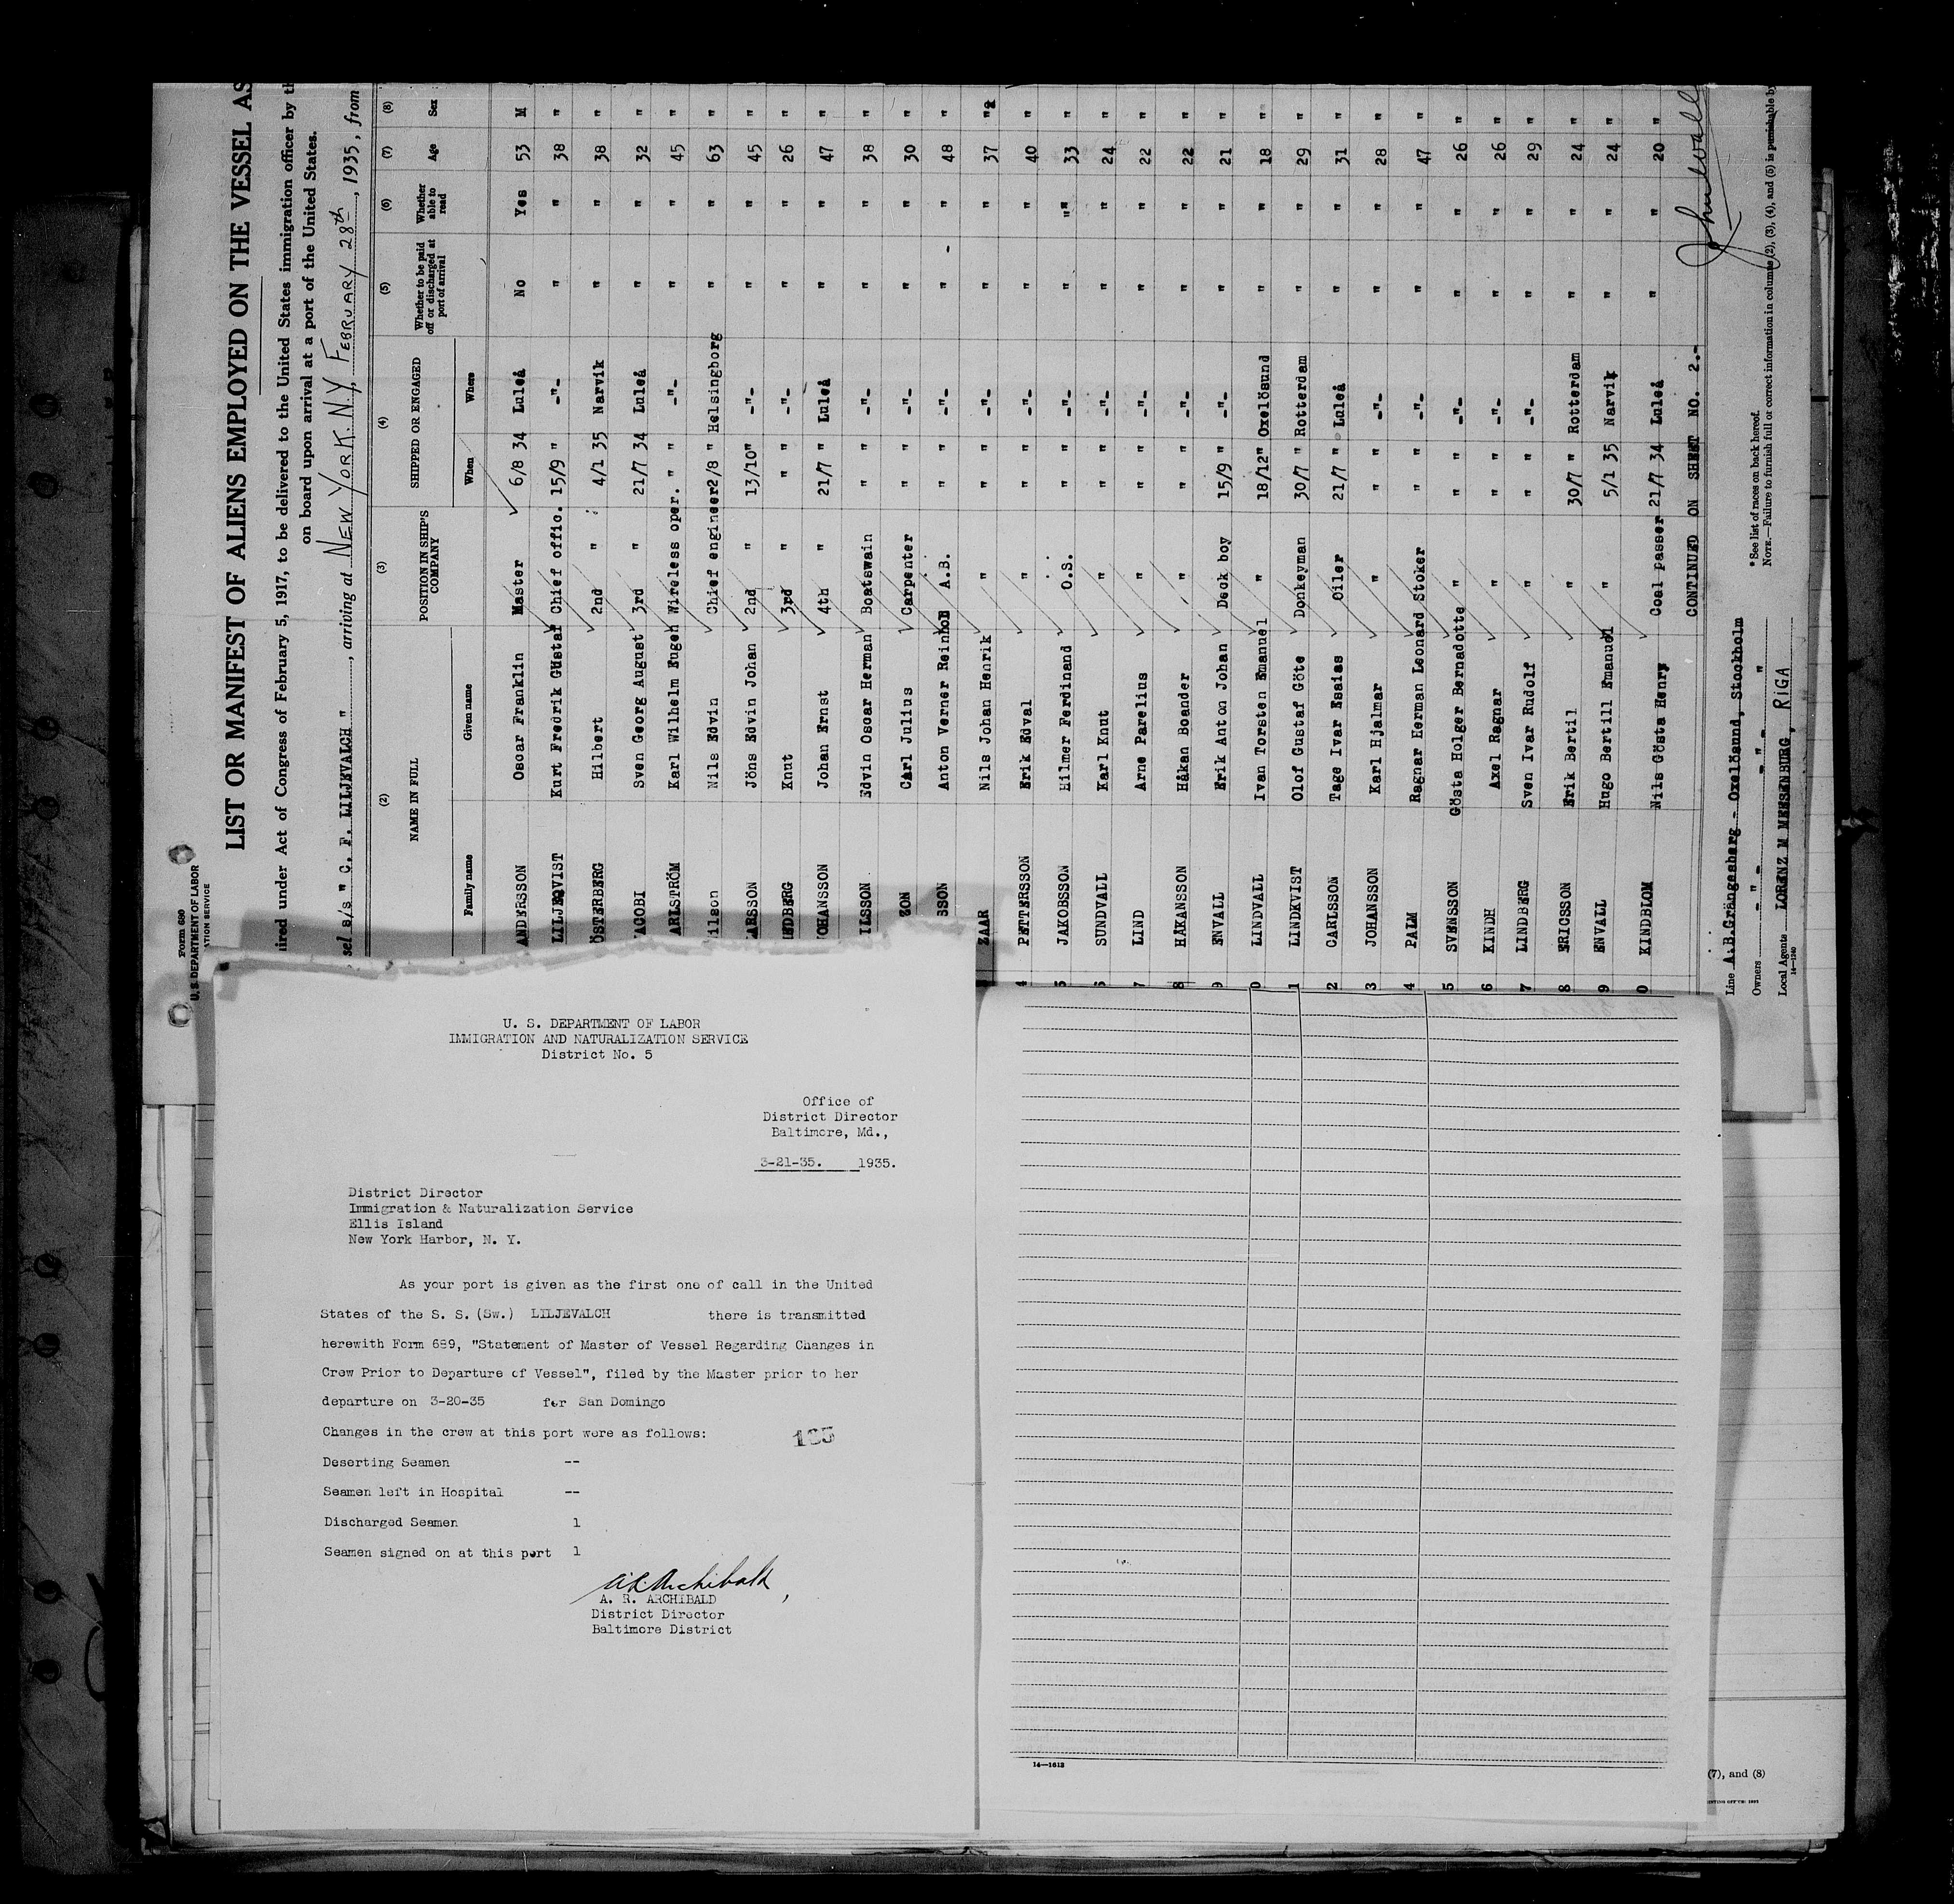 Form 680
U. S. DEPARTMENT OF LABOR
LIST OR MANIFEST OF ALIENS EMPLOYED ON THE VESSEL AS
ired under Act of Congress of February 5, 1917, to be delivered to the United States immigration officer by th
on board upon arrival at a port of the United States.
sel s/s " C. F. LILJEVALCH ", arriving at NEW YORK. N.Y, FEBRUARY 28th, 1935, from
(2) (3) (4) (5) (6) (7) (8)
NAME IN FULL POSITION IN SHIP'S COMPANY SHIPPED OR ENGAGED Whether to be paid off or discharged at port of arrival Whether able to read Age Sex
Family name Given name When Where
ANDERSSON Oscar Franklin Master 6/8 34 Luleå No Yes 53 M
LILJEQVIST Kurt Fredrik Gustaf Chief offic. 15/9 " -"- " " 38 "
ÖSTERBERG Hilbert 2nd " 4/1 35 Narvik " " 38 "
ACOBI Sven Georg August 3rd " 21/7 34 Luleå " " 32 "
ARLSTRÖM Karl Wilhelm Eugen Wireless oper. " " -"- " " 45 "
ilson Nils Edvin Chief engineer 2/8 " Helsingborg " " 63 "
ARSSON Jöns Edvin Johan 2nd " 13/10" -"- " " 45 "
EDBERG Knut 3rd " " " -"- " " 26 "
OHANSSON Johan Ernst 4th " 21/7 " Luleå " " 47 "
ILSSON Edvin Oscar Herman Boatswain " " -"- " " 38 "
ZON Carl Julius Carpenter " " -"- " " 30 "
SSON Anton Verner Reinhold A.B. " " -"- " " 48 "
ZAAR Nils Johan Henrik " " " -"- " " 37 "
4 PETTERSSON Erik Edval " " " -"- " " 40 "
5 JAKOBSSON Hilmer Ferdinand O.S. " " -"- " " 33 "
6 SUNDVALL Karl Knut " " " -"- " " 24 "
7 LIND Arne Parelius " " " -"- " " 22 "
8 HÅKANSSON Håkan Boander " " " -"- " " 22 "
9 ENVALL Erik Anton Johan Deck boy 15/9 " -"- " " 21 "
0 LINDVALL Ivan Torsten Emanuel " 18/12" Oxelösund " " 18 "
1 LINDKVIST Olof Gustaf Göte Donkeyman 30/7 " Rotterdam " " 29 "
2 CARLSSON Tage Ivar Esaias Oiler 21/7 " Luleå " " 31 "
3 JOHANSSON Karl Hjalmar " " " -"- " " 28 "
4 PALM Ragnar Herman Leonard Stoker " " -"- " " 47 "
5 SVENSSON Gösta Holger Bernadotte " " " -"- " " 26 "
6 KINDH Axel Ragnar " " " -"- " " 26 "
7 LINDBERG Sven Ivar Rudolf " " " -"- " " 29 "
8 ERICSSON Erik Bertil " 30/7 " Rotterdam " " 24 "
9 ENVALL Hugo Bertill Emanuel " 5/1 35 Narvik " " 24 "
0 KINDBLOM Nils Gösta Henry Coal passer 21/7 34 Luleå " " 20 "
CONTINUED ON SHEET NO. 2.-
Line A.B.Grängesberg - Oxelösund, Stockholm
Owners -"- -"- "
Local Agents LORENZ M MEESENBURG, RIGA
14-1240
*See list of races on back hereof.
NOTE.—Failure to furnish full or correct information in columns (2), (3), (4), and (5) is punishable by
U. S. DEPARTMENT OF LABOR
IMMIGRATION AND NATURALIZATION SERVICE
District No. 5
Office of
District Director
Baltimore, Md.,
3-21-35. 1935.
District Director
Immigration & Naturalization Service
Ellis Island
New York Harbor, N. Y.
As your port is given as the first one of call in the United
States of the S. S. (Sw.) LILJEVALCH there is transmitted
herewith Form 689, "Statement of Master of Vessel Regarding Changes in
Crew Prior to Departure of Vessel", filed by the Master prior to her
departure on 3-20-35 for San Domingo
Changes in the crew at this port were as follows:
Deserting Seamen --
Seamen left in Hospital --
Discharged Seamen 1
Seamen signed on at this port 1
A. R. Archibald
A. R. ARCHIBALD
District Director
Baltimore District
14—1613
(7), and (8)